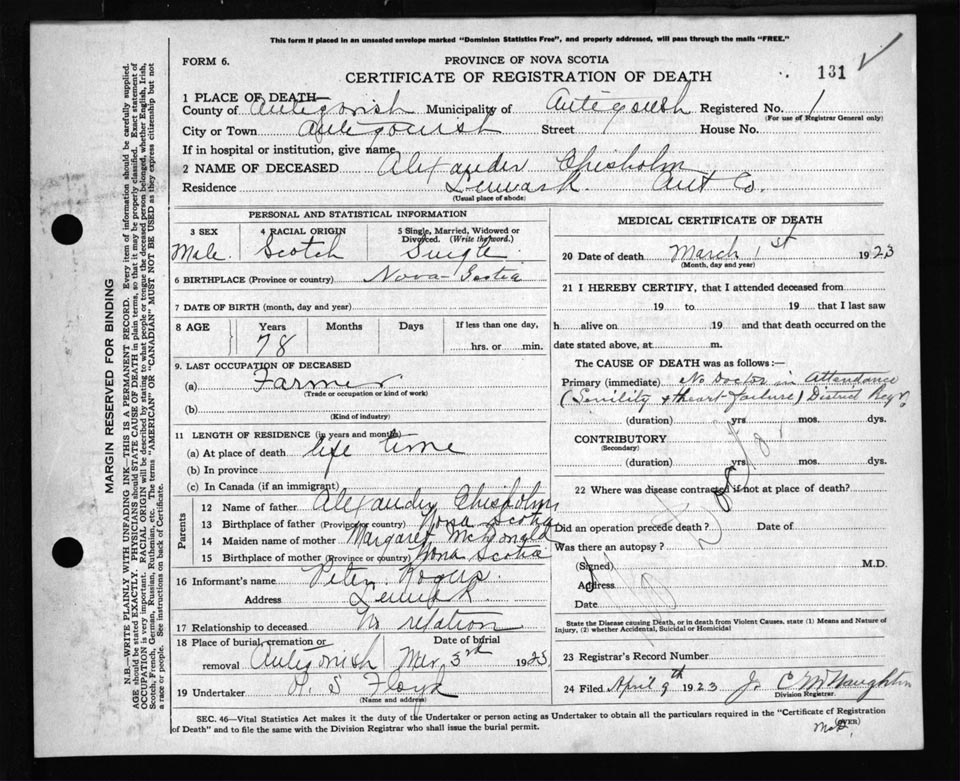 This form if placed in an unsealed envelope marked "Dominion Statistics Free", and properly addressed, will pass through the mails "FREE."
FORM 6.
PROVINCE OF NOVA SCOTIA
CERTIFICATE OF REGISTRATION OF DEATH
131
1 PLACE OF DEATH—
County of Antigonish Municipality of Antigonish Registered No. 1
(For use of Registrar General only)
City or Town Antigonish Street House No.
If in hospital or institution, give name
2 NAME OF DECEASED Alexander Chisholm
Residence Ant Co.
(Usual place of abode)
PERSONAL AND STATISTICAL INFORMATION
3 SEX 4 RACIAL ORIGIN 5 Single, Married, Widowed or Divorced. (Write the word.)
Male. Scotch Single
6 BIRTHPLACE (Province or country) Nova Scotia
7 DATE OF BIRTH (month, day and year)
8 AGE Years Months Days If less than one day,
78 hrs. or min.
9. LAST OCCUPATION OF DECEASED
(a) Farmer
(Trade or occupation or kind of work)
(b)
(Kind of industry)
11 LENGTH OF RESIDENCE (in years and months)
(a) At place of death life time
(b) In province
(c) In Canada (if an immigrant)
Parents
12 Name of father Alexander Chisholm
13 Birthplace of father (Province or country) Nova Scotia
14 Maiden name of mother Margaret McDonald
15 Birthplace of mother (Province or country) Nova Scotia
16 Informant's name Peter
Address
17 Relationship to deceased No relation
18 Place of burial, cremation or removal Antigonish Date of burial Mar 3rd 1923
19 Undertaker Floyd
(Name and address)
MEDICAL CERTIFICATE OF DEATH
20 Date of death March 1st 1923
(Month, day and year)
21 I HEREBY CERTIFY, that I attended deceased from
19 to 19 that I last saw
h alive on 19 and that death occurred on the
date stated above, at m.
The CAUSE OF DEATH was as follows:—
Primary (immediate) No Doctor in Attendance
(Senility & heart failure) District Reg'r
(duration) yrs mos. dys.
CONTRIBUTORY
(Secondary)
(duration) yrs. mos. dys.
22 Where was disease contracted if not at place of death?
Did an operation precede death? Date of
Was there an autopsy?
(Signed) M.D.
Address
Date
No Doctor
State the Disease causing Death, or in death from Violent Causes, state (1) Means and Nature of
Injury, (2) whether Accidental, Suicidal or Homicidal
23 Registrar's Record Number
24 Filed April 9th 1923
Division Registrar.
SEC. 46—Vital Statistics Act makes it the duty of the Undertaker or person acting as Undertaker to obtain all the particulars required in the "Certificate of Registration
of Death" and to file the same with the Division Registrar who shall issue the burial permit.
(OVER)
MARGIN RESERVED FOR BINDING
N.B.—WRITE PLAINLY WITH UNFADING INK—THIS IS A PERMANENT RECORD. Every item of information should be carefully supplied.
AGE should be stated EXACTLY. PHYSICIANS should STATE CAUSE OF DEATH in plain terms, so that it may be properly classified. Exact statement of
OCCUPATION is very important. RACIAL ORIGIN will be described by stating to what people or tongue the deceased person belonged, whether English, Irish,
Scotch, French, German, Russian, Ruthenian, etc. The terms "AMERICAN" OR "CANADIAN" MUST NOT BE USED as they express citizenship but not
a race or people. See instructions on back of Certificate.